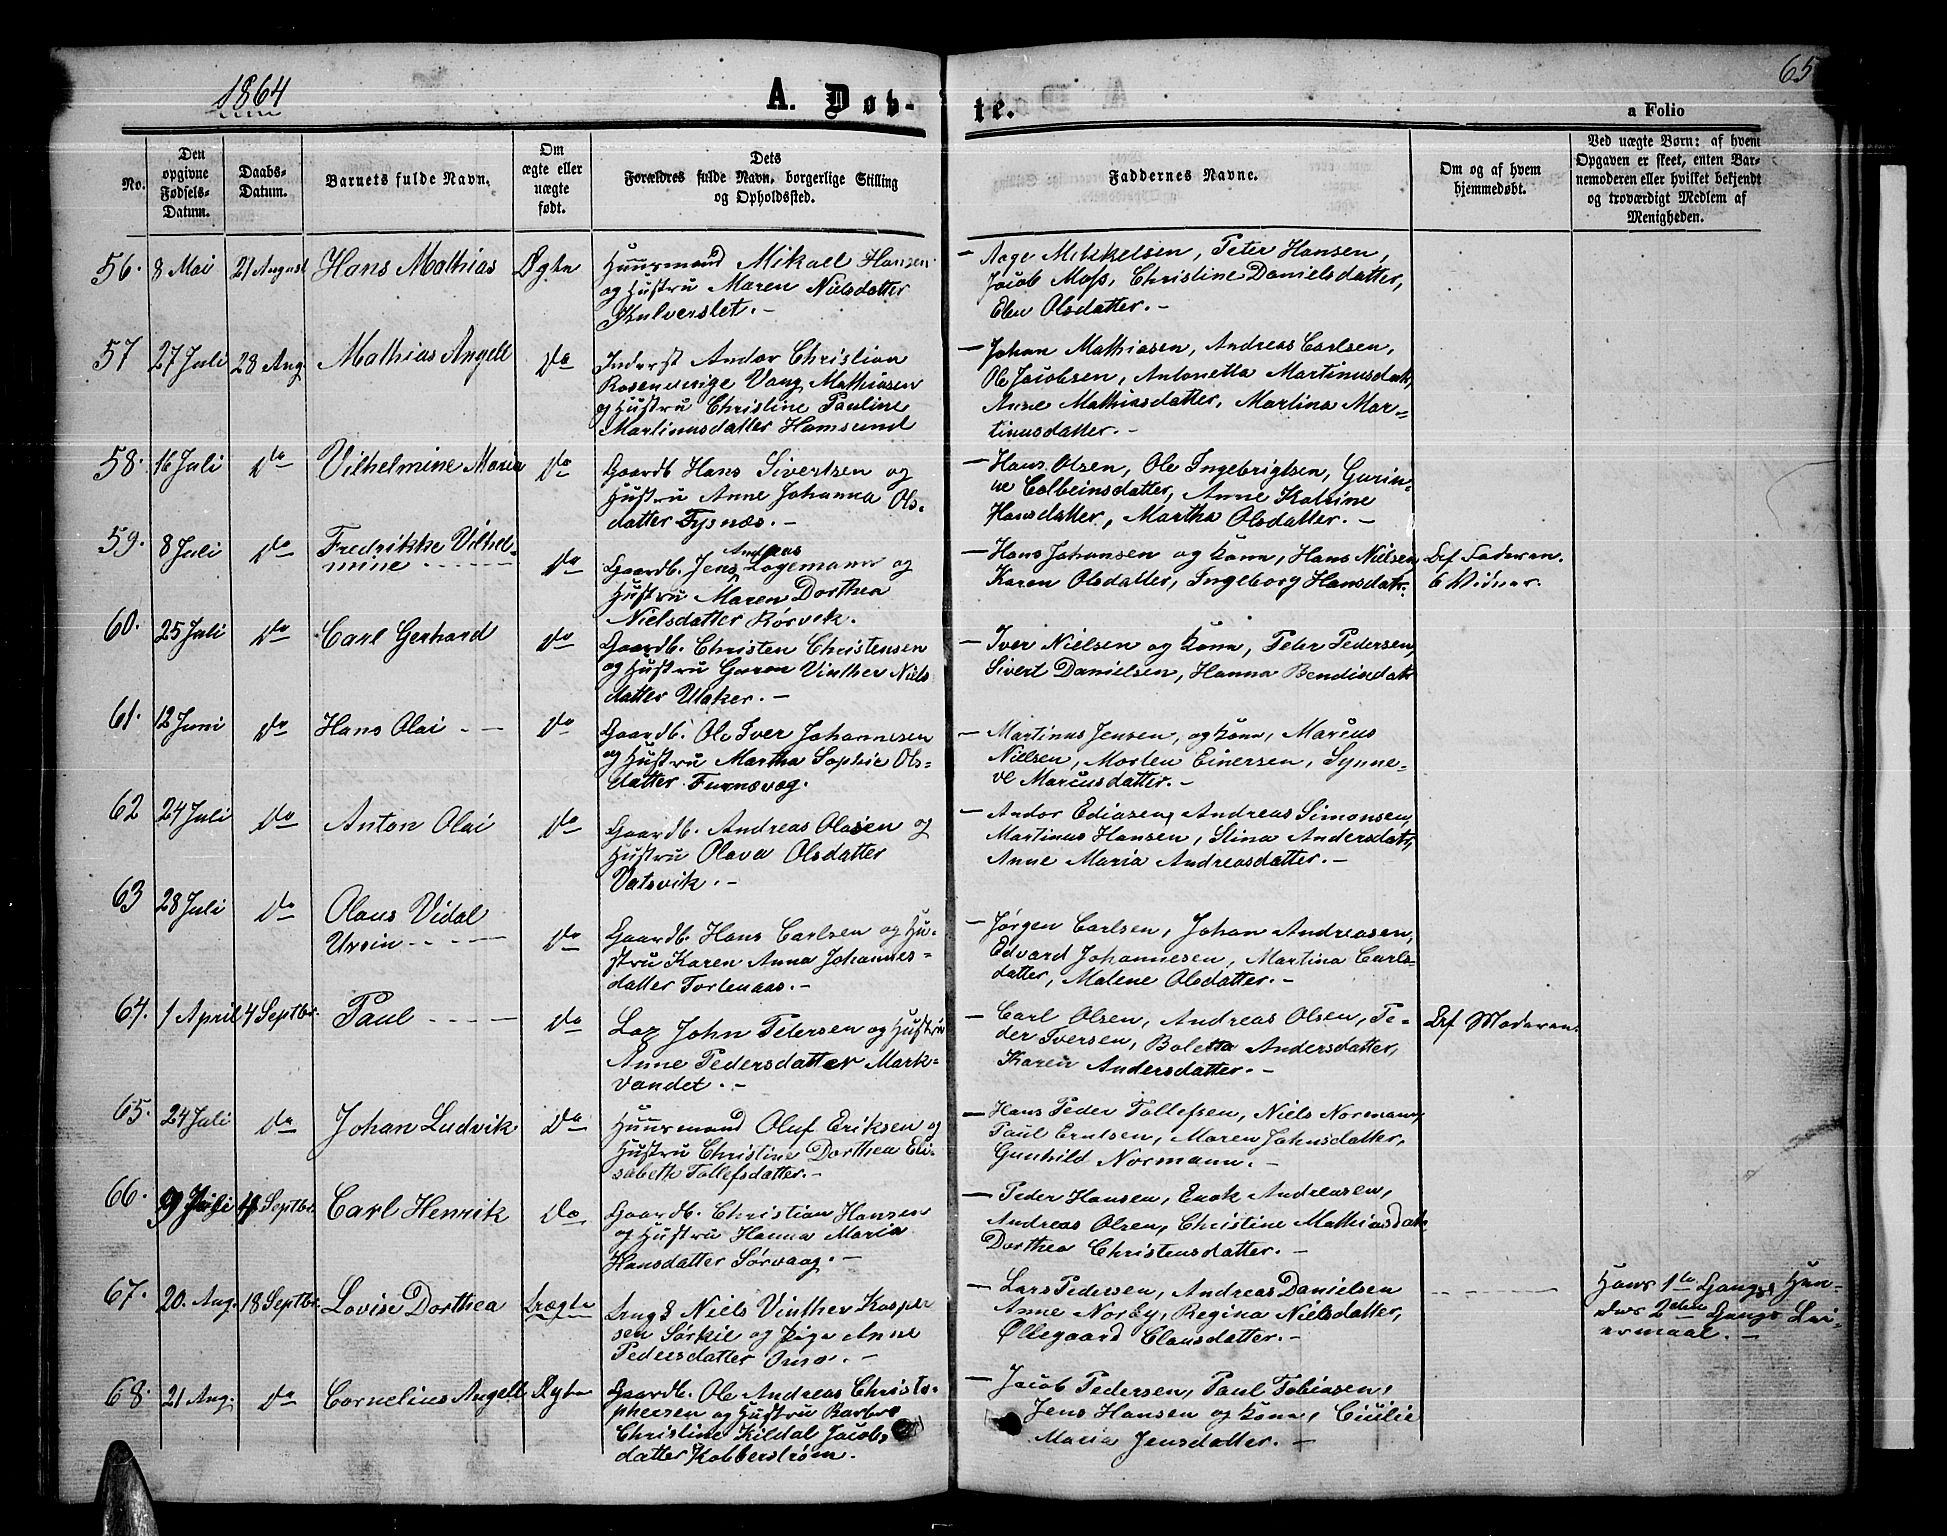 1864
65
A. Døb-
te.
a Folio
No.
Den
opgivne
Fødsels-
Datum.
Daabs-
Datum.
Barnets fulde Navn.
Om
ægte eller
uægte
født.
Dets
Forældres fulde Navn, borgerlige Stilling
og Opholdssted.
Faddernes Navne.
Om og af hvem
hjemmedøbt.
Ved uægte Børn: af hvem
Opgaven er skeet, enten Bar-
nemoderen eller hvilket bekjendt
og troværdigt Medlem af
Menigheden.
56. 8 Mai 21 August Hans Mathias Ægte
Huusmand Mikael Hansen
og Hustru Maren Nielsdatter
Kulverslet. -
- Aage Mikkelsen, Peter Hansen,
Jacob Moss, Christine Danielsdatter,
Elen Olsdatter. -
57 27 Juli 28 Aug. Mathias Angell Do
Inderst Andor Christian
Rosenvinge Vang Mathiasen
og Hustru Christine Pauline
Martinusdatter Hamsund
- Johan Mathiasen, Andreas Carlsen,
Ole Jacobsen, Antonetta Martinusdatr,
Anne Mathiasdatter, Martina Mar-
tinusdatter. -
58. 16 Juli Do Vilhelmine Maria Do
Gaardb. Hans Sivertsen og
Hustru Anne Johanna Ols-
datter Fysnæs. -
- Hans Olsen, Ole Ingebrigtsen, Gurin-
ne Colbeinsdatter, Anne Katrine
Hansdatter, Martha Olsdatter. -
59. 8 Juli Do Fredrikke Vilhel-
mine Do
Gaardb. Jens Andreas Logemann og
Hustru Maren Dorthea
Nielsdatter Rørvik.
- Hans Johansen og Kone, Hans Nielsen
Karen Olsdatter, Ingeborg Hansdatr.
Af Faderen.
6 Vidner.
60. 25 Juli Do Carl Gerhard Do
Gaardb. Christen Christensen
og Hustru Guron Vinther Niels
datter Ulaker. -
- Iver Nielsen og Kone, Peter Pedersen,
Sivert Danielsen, Hanna Bendixdatr
61. 12 Juni Do Hans Olai Do
Gaardb. Ole Iver Johannesen
og Hustru Martha Sophie Ols-
datter Furnævag.
- Martinus Jensen, og Kone, Marcus
Nielsen, Morten Einersen, Synne-
ve Marcusdatter. -
62 24 Juli Do Anton Olai Do
Gaardb. Andreas Olasen og
Hustru Olava Olsdatter
Vatsvik. -
- Andor Ediasen, Andreas Simonsen,
Martinus Hansen, Stina Andersdatr,
Anne Maria Andreasdatter. -
63 28 Juli Do Olaus Vidal
Ursin Do
Gaardb. Hans Carlsen og Hu-
stru Karen Anna Johannes-
datter Tortenaas. -
- Jørgen Carlsen, Johan Andreasen,
Edvard Johannesen, Martina Carls-
datter, Malene Olsdatter. -
64. 1 April 4 Septbr. Paul Do
Lap John Petersen og Hustru
Anne Pedersdatter Mark-
vandet. -
- Carl Olsen, Andreas Olsen, Pe-
der Iversen, Boletta Andersdatter,
Karen Andersdatter. -
Af Moderen.
65. 24 Juli Do Johan Ludvik Do
Huusmand Oluf Eriksen og
Hustru Christine Dorthea Eli-
sabeth Tollefsdatter. -
- Hans Peder Tollefsen, Niels Normann,
Paul Erulsen, Maren Johnsdatter,
Gunhild Normann. -
66. 9 Juli 11 Septbr. Carl Henrik Do
Gaardb. Christian Hansen
og Hustru Hanna Maria
Hansdatter Sørvaag. -
- Peder Hansen, Enok Andreasen,
Andreas Olsen, Christine Mathiasdatr
Dorthea Christensdatter. -
67. 20. Aug. 18 Septbr. Lovise Dorthea Uægte
Ungk. Niels Vinther Kasper
sen Sørkil og Pige Anne
Pedersdatter
- Lars Pedersen, Andreas Danielsen
Anne Norby, Regina Nielsdatter,
Ollegaard Clausdatter. -
Hans 1te Gangs Hen-
des 2den Gangs Lei-
ermaal. -
68. 21 Aug. Do Cornelius Angell Ægte
Gaardb. Ole Andreas Christo-
phersen og Hustru Barbro
Christine Kildal Jacobs
datter Kobberstrøm.
- Jacob Pedersen, Paul Tobiasen,
Jens Hansen og Kone, Cicilie
Maria Jensdatter. -